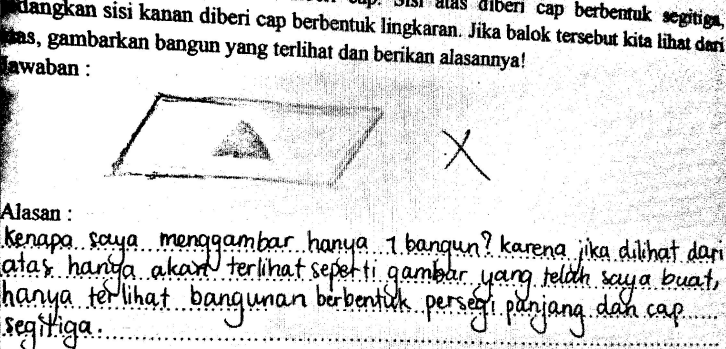 cap. Sisi atas diberi cap berbentuk segitiga,
sisi kanan diberi cap berbentuk lingkaran. Jika balok tersebut kita lihat dari
atas, gambarkan bangun yang terlihat dan berikan alasannya!
Jawaban :
X
Alasan :
Kenapa saya menggambar hanya 1 bangun? karena jika dilihat dari
atas hanya akan terlihat seperti gambar yang telah saya buat,
hanya terlihat bangunan berbentuk persegi panjang dan cap
segitiga.